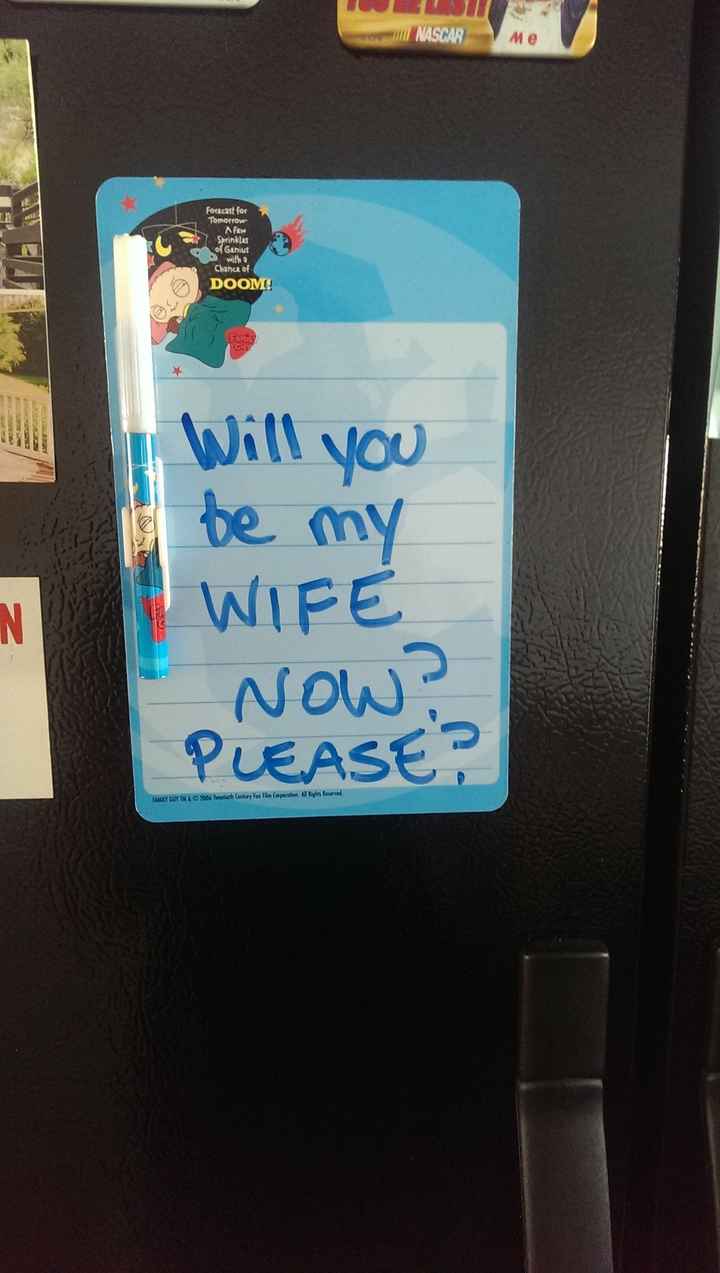 NASCAR
Me
Forecast for
Tomorrow
A Few
Sprinkles
of Genius
with a
Chance of
DOOM!
N
Will you
be my
WIFE
NOW?
PLEASE?
FAMILY GUY TM & © 2006 Twentieth Century Fox Film Corporation. All Rights Reserved.